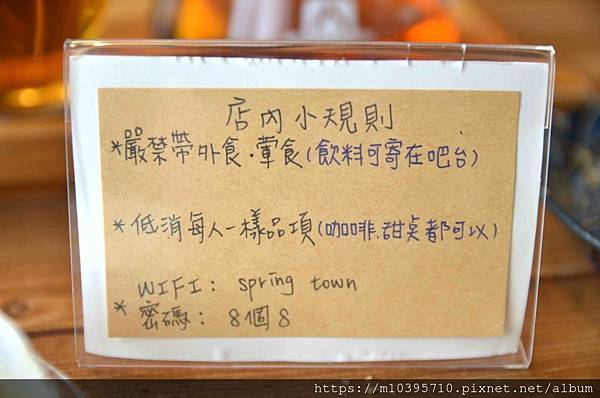 店內小規則
*嚴禁帶外食.葷食(飲料可寄在吧台)
*低消每人一樣品項(咖啡.甜桌都可以)
WIFI: spring town
*密碼: 8個8
https://m10395710.pixnet.net/album